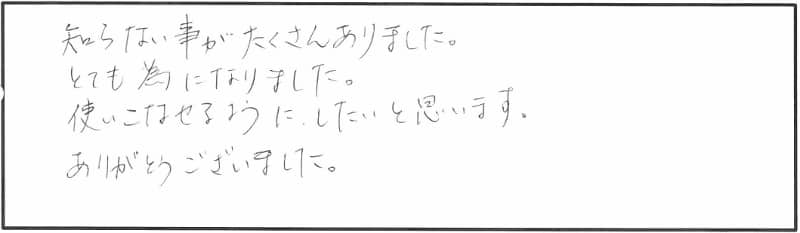 知らない事がたくさんありました。
とても為になりました。
使いこなせるように、したいと思います。
ありがとうございました。